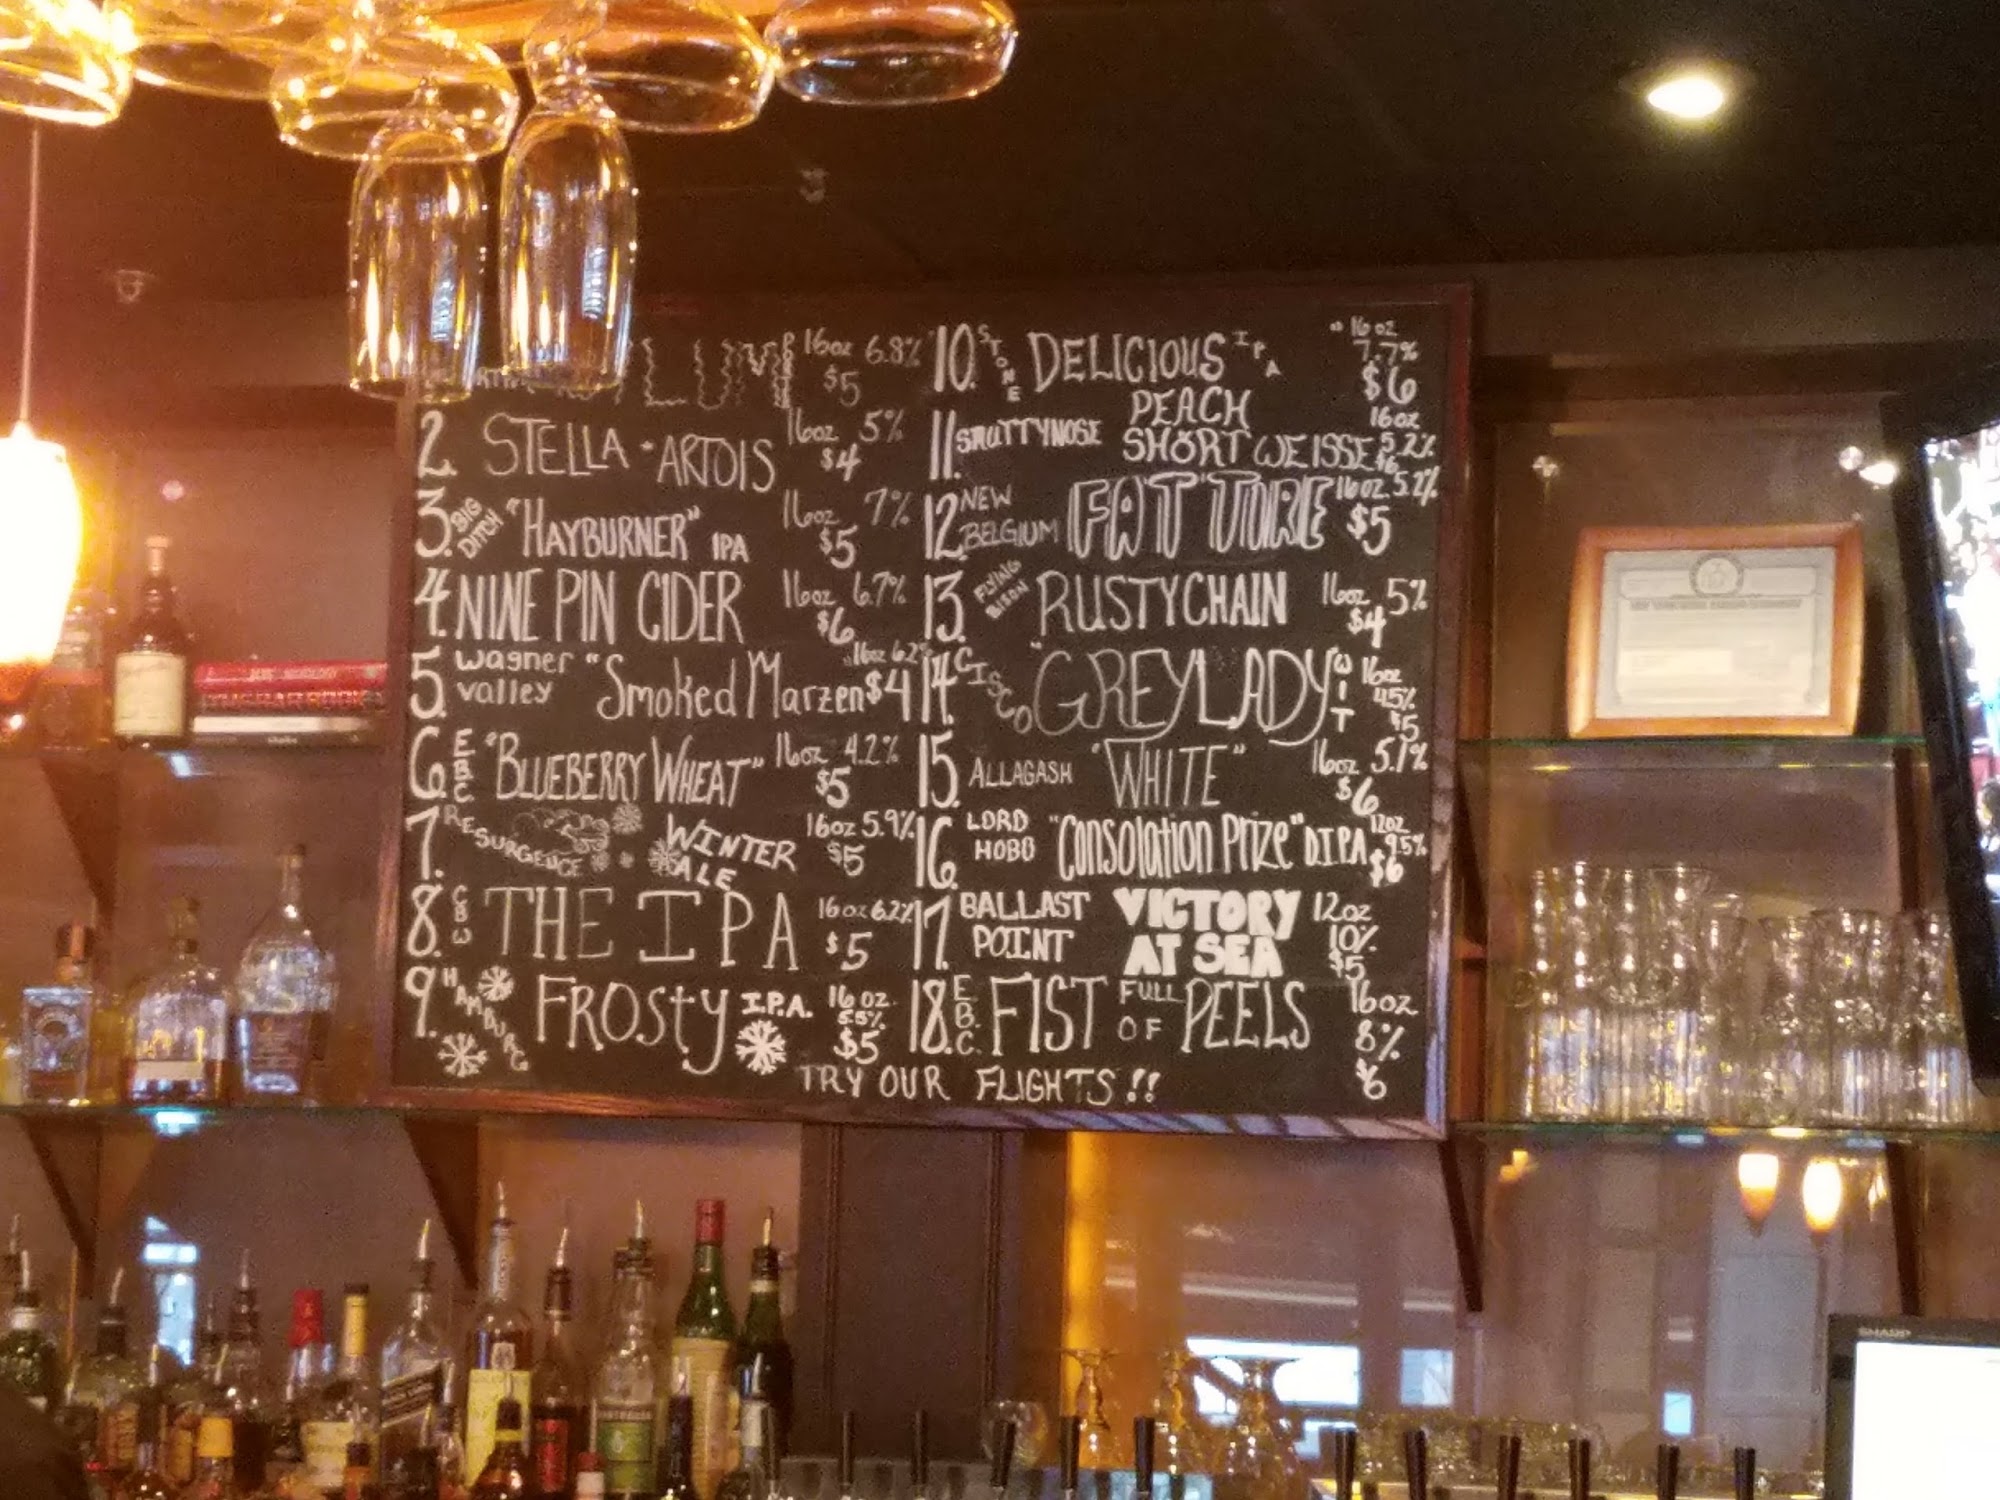 16oz 6.8%
$5
2. STELLA · ARTOIS 16oz 5% $4
3. BIG DITCH "HAYBURNER" IPA 16oz 7% $5
4. NINE PIN CIDER 16oz 6.7% $6
5. wagner valley "Smoked Marzen 16oz 6.2% $4
6. E.B.C. "BLUEBERRY WHEAT" 16oz 4.2% $5
7. RESURGENCE WINTER ALE 16oz 5.9% $5
8. CBW THE IPA 16oz 6.2% $5
9. HAMBURG FROSTY I.P.A. 16oz. 5.5% $5
10. STONE DELICIOUS IPA 16oz 7.7% $6
11. SMUTTYNOSE PEACH SHORT WEISSE 16oz 5.2% $6
12. NEW BELGIUM FAT TIRE 16oz. 5.2% $5
13. FLYING BISON RUSTYCHAIN 16oz 5% $4
14. CISCO "GREYLADY WIT 16oz 4.5% $5
15. ALLAGASH "WHITE" 16oz 5.1% $6
16. LORD HOBO "Consolation Prize" D.I.P.A. 12oz 9.5% $6
17. BALLAST POINT VICTORY AT SEA 12oz 10% $5
18. E.B.C. FIST FULL OF PEELS 16oz 8% $6
TRY OUR FLIGHTS!!
SHARP